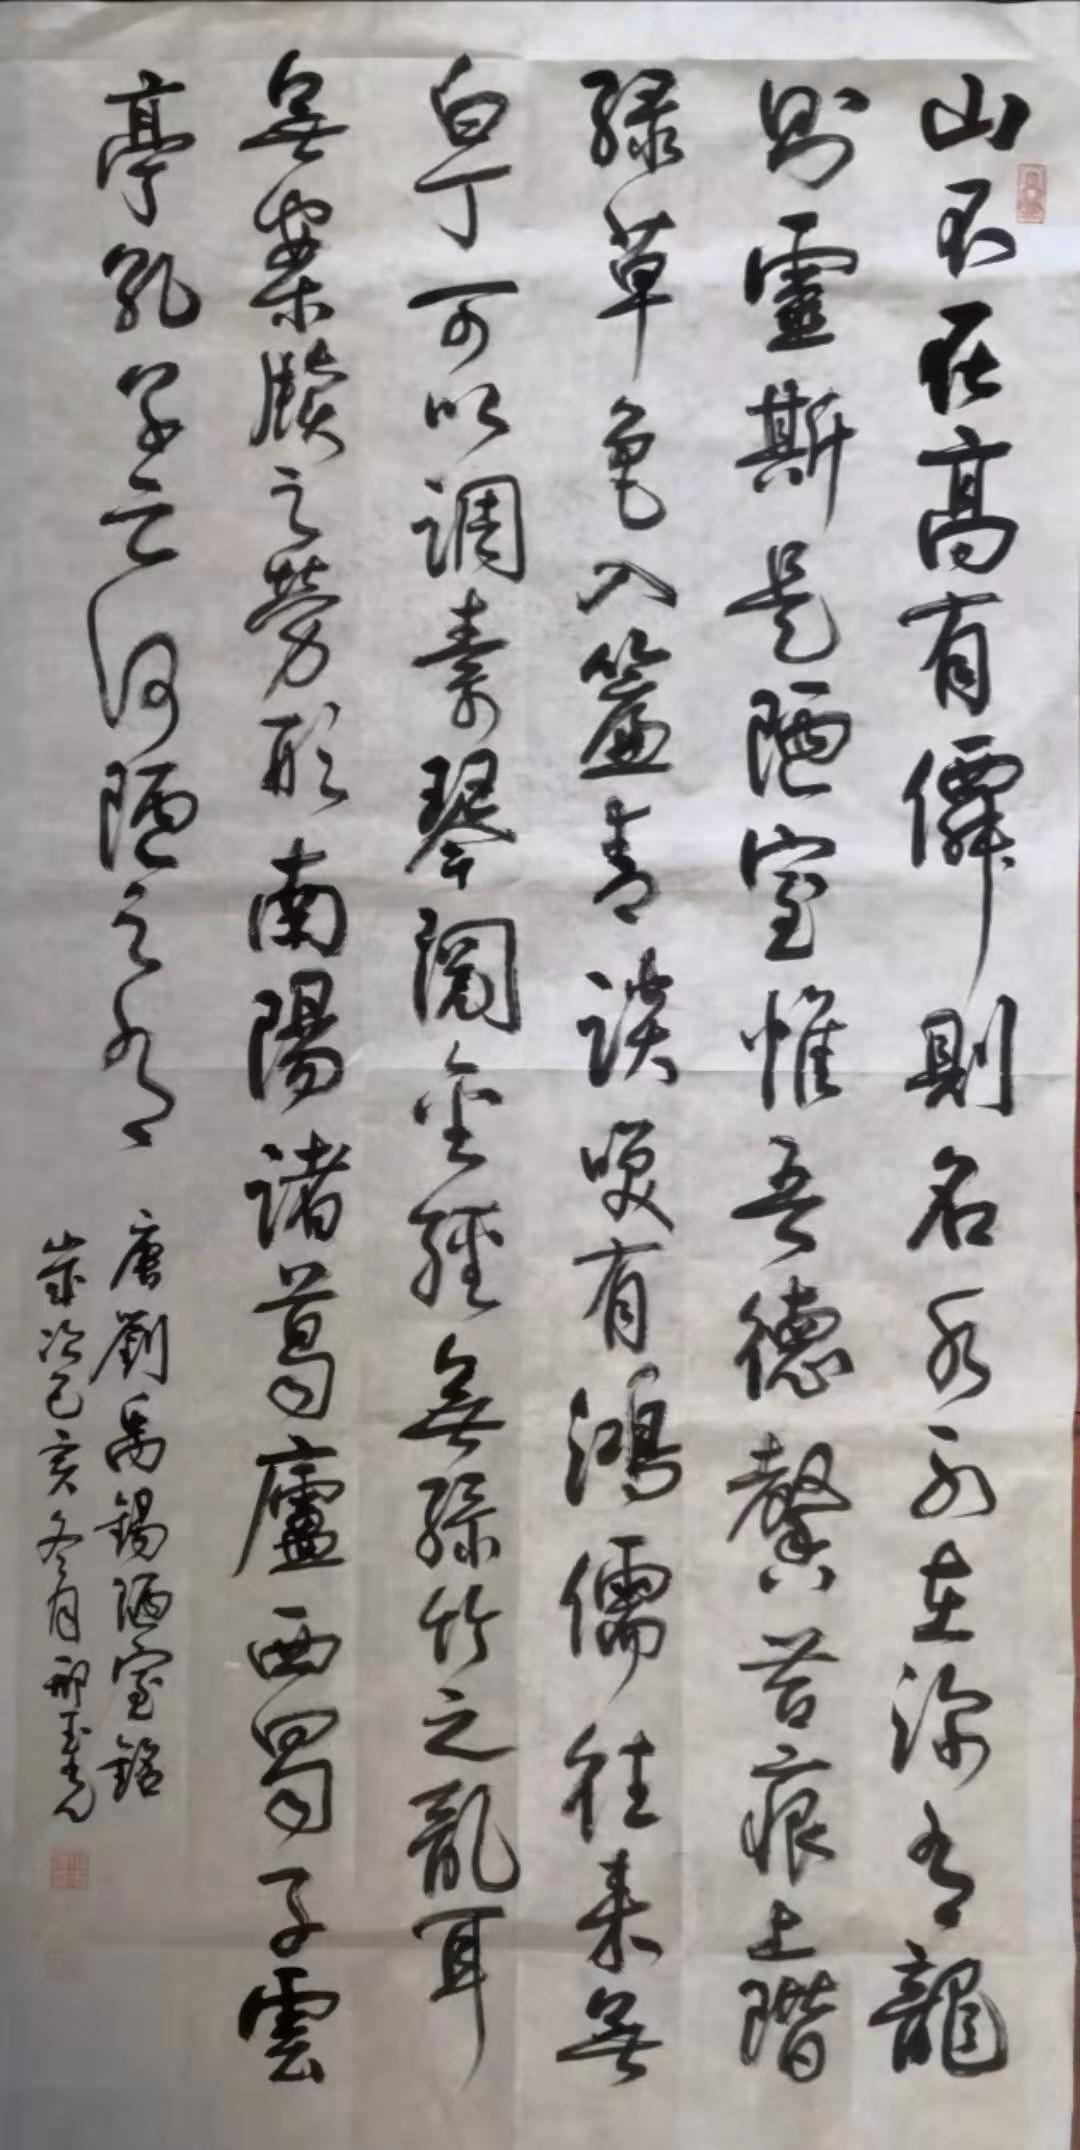 山不在高有僊則名水不在深有龍
則靈斯是陋室惟吾德馨苔痕上階
緑草色入簾青談咲有鴻儒往来無
白丁可以調素琴閱金經無絲竹之亂耳
無案牘之勞形南陽諸葛廬西蜀子雲
亭孔子云何陋之有
唐劉禹錫陋室銘
歲次己亥冬月